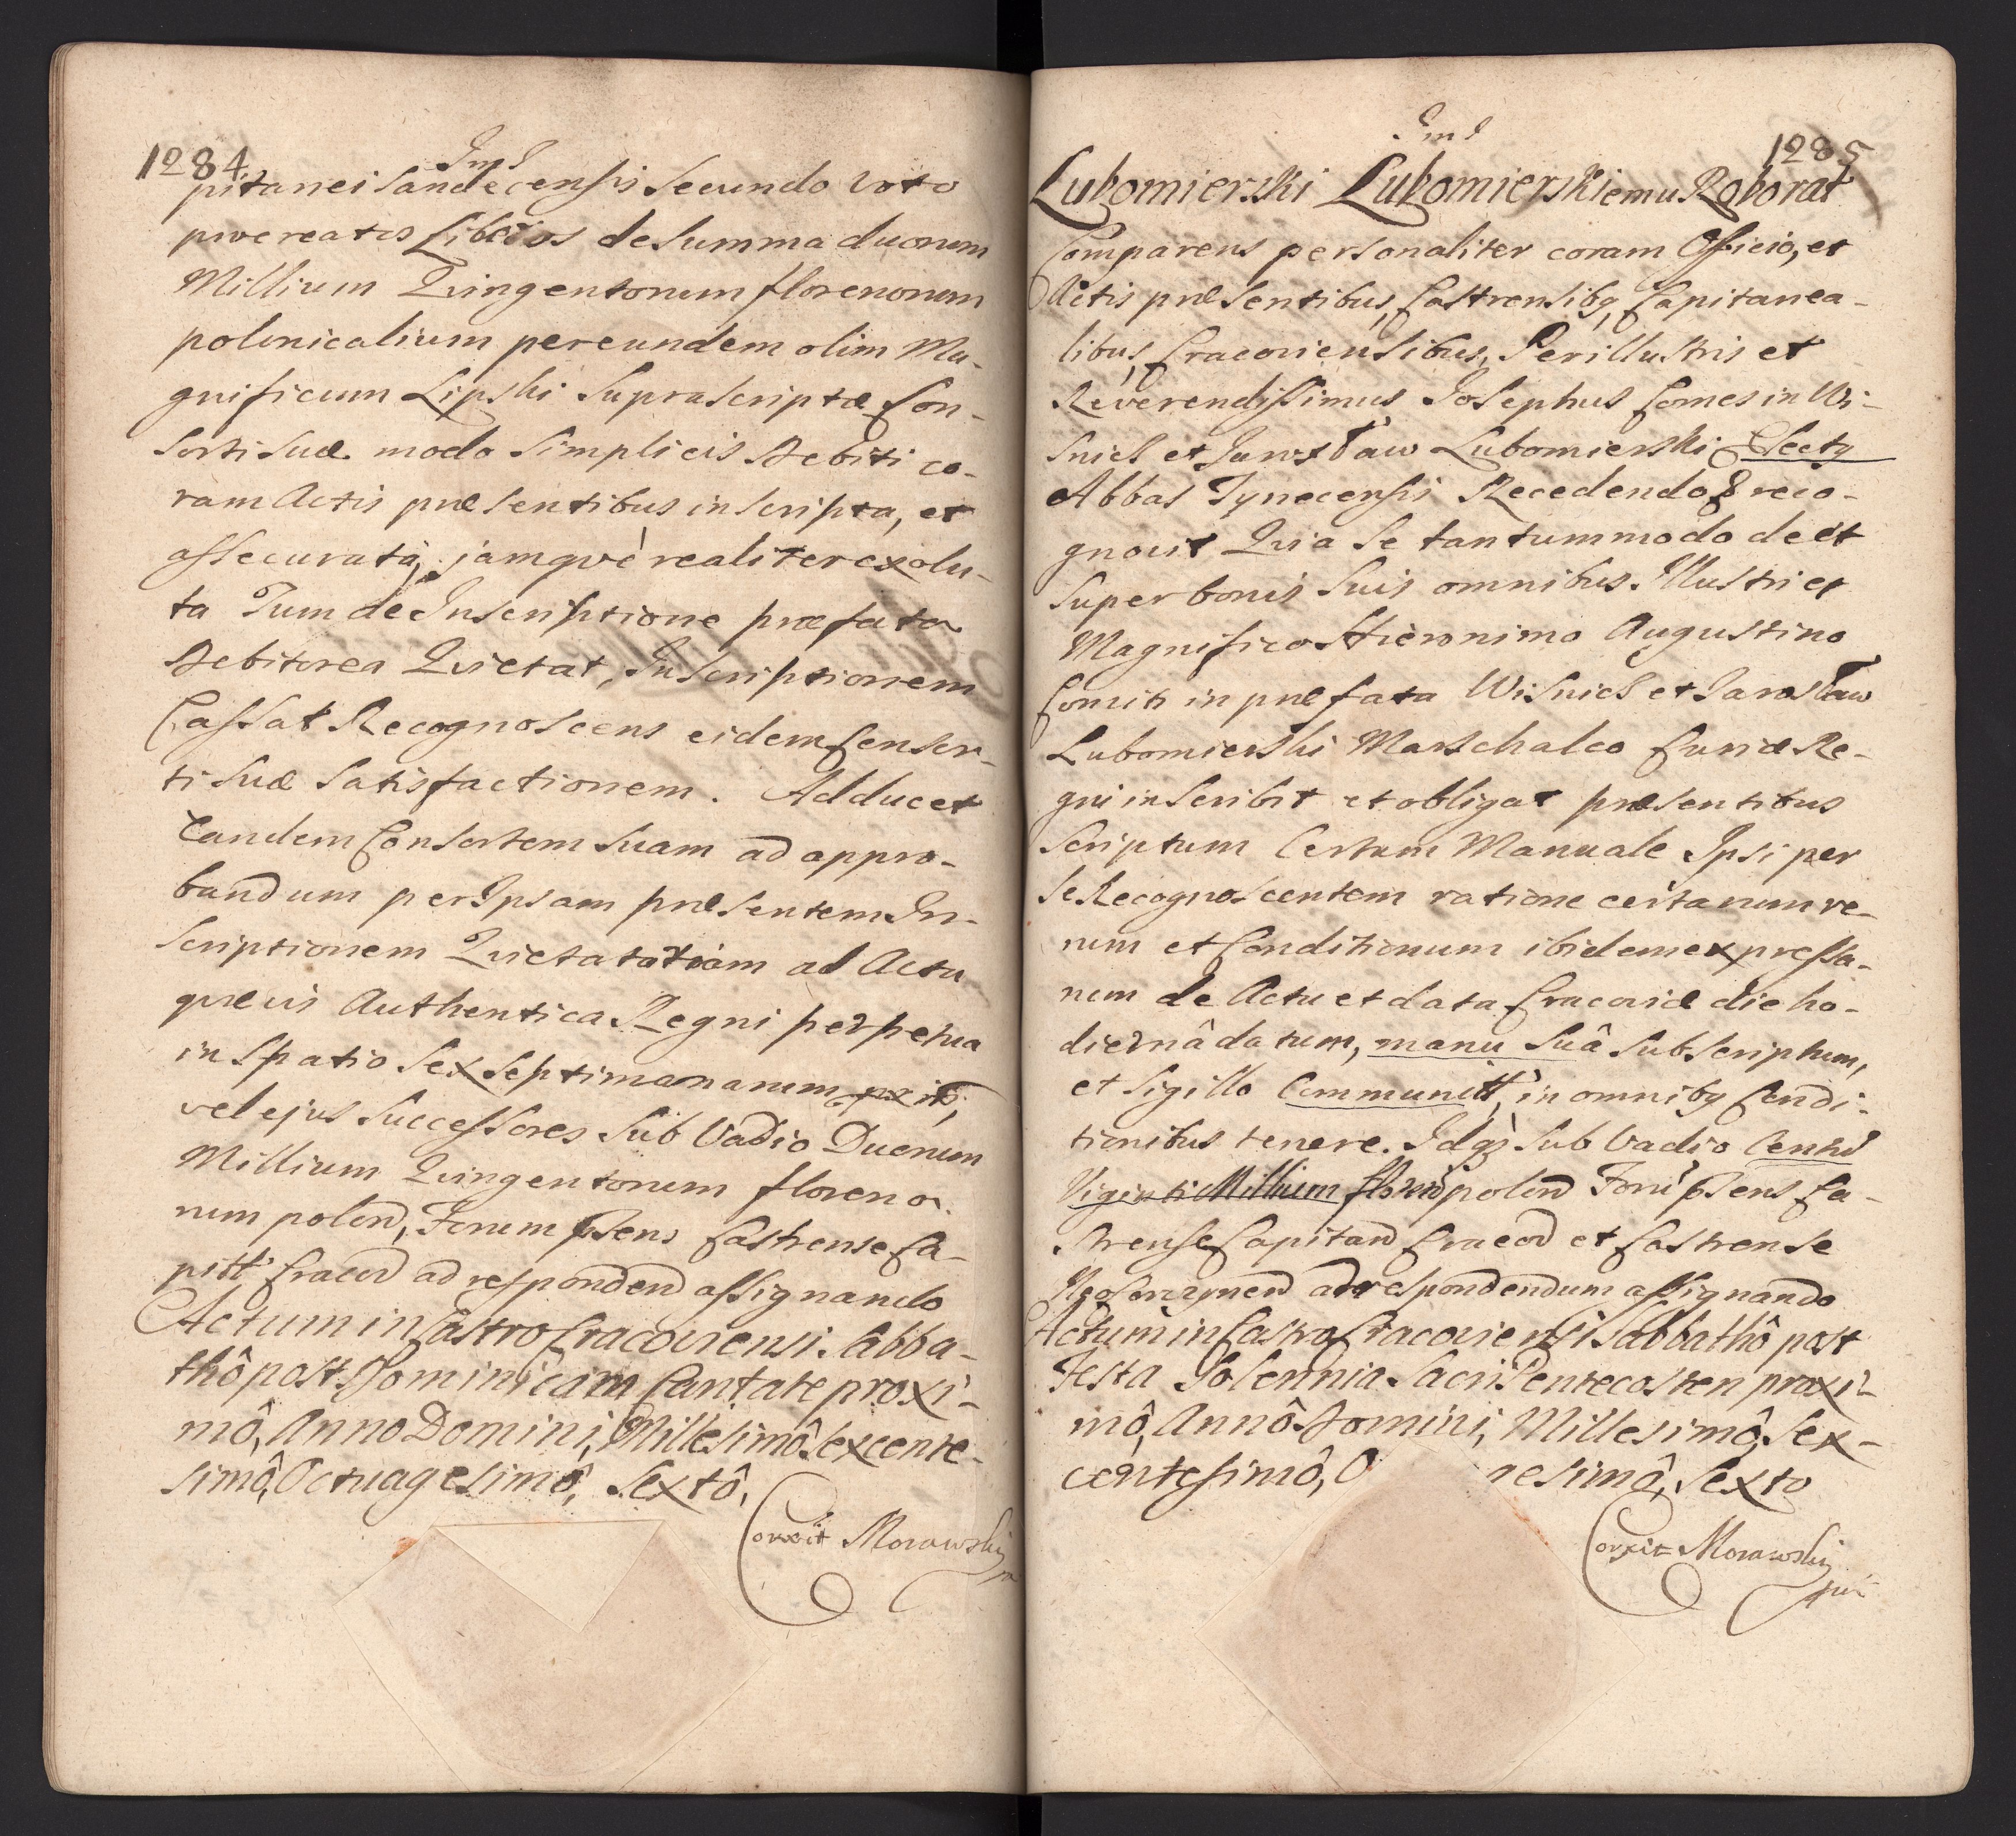 1284
Ind
pitanei Sandecensis Secundo voto
procreatos Liberos de Summa duorum
Millium Quingentorum florenorum
polonicalium per eundem olim Ma-
gnificum Lipski Suprascriptæ Con-
sorti Suæ modo Simplicis Debiti co-
ram Actis præsentibus inscripta, et
assecurata, jamqvè realiter exolu-
ta Tum de Inscriptione præfata
Debitorea Qvietat, Inscriptionem
Cassat Recognoscens eidem Consor-
ti Suæ Satisfactionem. Adducet
Eandem Consortem Suam ad appro-
bandum per Ipsam præsentem In-
scriptionem Qvietatotiam ad Acta
quævis Authentica Regni perpetua
in Spatio Sex Septimanarum
vel ejus Successores Sub Vadio Duorum
Millium Qvingentorum floreno-
rum polon, Forum pñsens Castrense Ca-
pitt Cracov ad respondend assignando
Actum in Castro Cracoviensi Sabba-
thô post Dominicam Cantate proxi-
mô, Anno Domini, Millesimô Sexcente-
simô, Octuagesimô, Sextô,
Correxit Morawski
1285
Ind
Lubomierski Lubomierskiemu Roborat
Comparens personaliter coram Officio, et
Actis præsentibus, Castrensibq, Capitanea-
libus, Cracoviensibus, Perillustris et
Reverendissimus Josephus Comes in Wi-
snicz et Jarosław Lubomierski Electq
Abbas Tynecensis Recedendo & reco-
gnovit Qvia Se tantummodo de et
Super bonis Suis omnibus Illustri et
Magnifico Hieronimo Augustino
Comiti in præfata Wisnicz et Jarosław
Lubomierski Marschalco Curiæ Re-
gni inscribit et obligat præsentibus
Scriptum Certum Manuale Ipsi per
Se Recognoscentem ratione certarum re-
rum et Conditionum ibidem expressa-
rum de Actu et data Cracoviæ die ho-
diernâ datum, manu Suâ Subscriptum,
et Sigillo Communitt, in omnibq Condi-
tionibus tenere. Idqz Sub Vadio Centu
Viginti Millium floren polon Foru pñsens Ca-
strense Capitan Cracov et Castrense
ad respondendum assignando
Actum in Castro Cracoviensi Sabbathô post
Festa Solennia Sacri Pentecosten proxi-
mô, Annô Domini, Millesimô, Sex-
centesimô, O gesimô, Sexto
Correxit Morawski